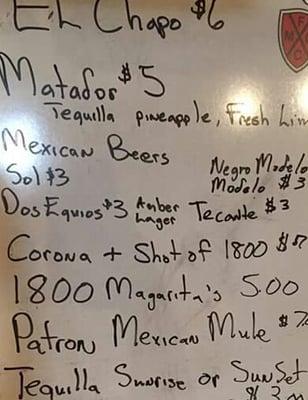 EL Chapo $6
Matador $5
Tequilla pineapple, Fresh Lim
Mexican Beers
Negro Modelo
Sol $3
Modelo $3
Dos Equios $3 Amber Lager Tecante $3
Corona + Shot of 1800 $7
1800 Magarita's 5.00
Patron Mexican Mule $7
Tequilla Sunrise or SunSet